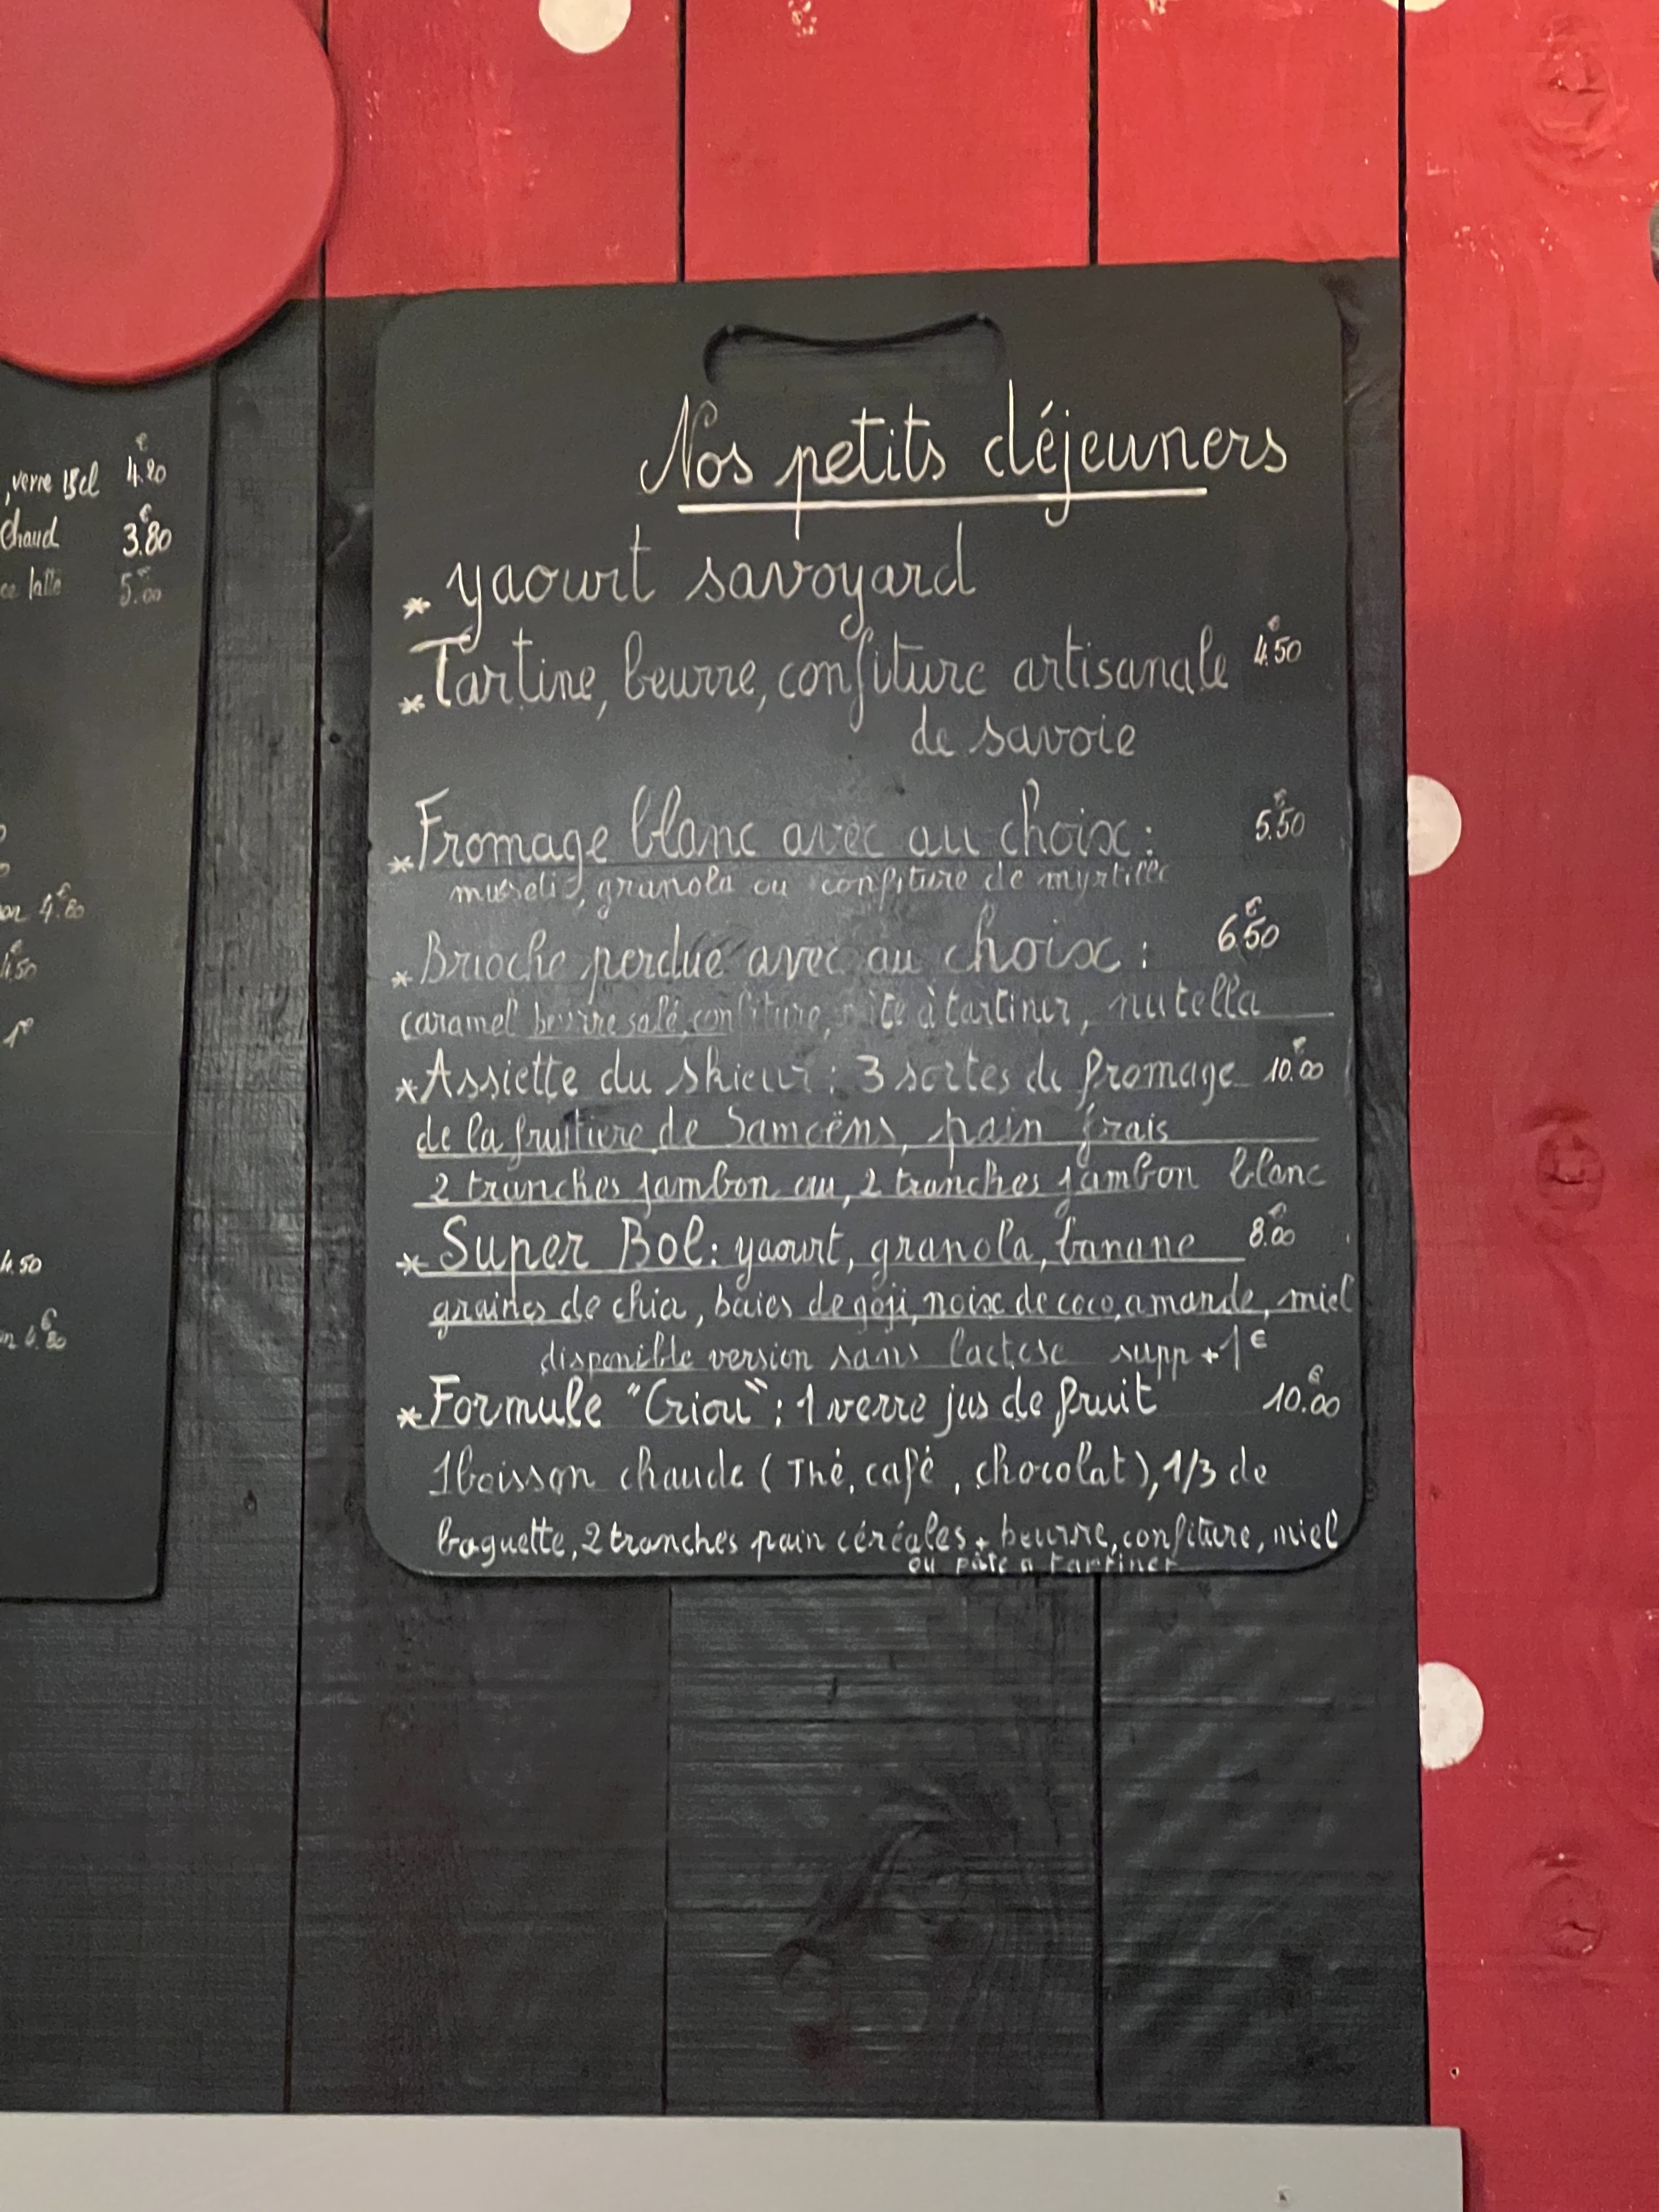 , verre 15cl 4.20 €
Chaud 3.80 €
ce latte 5.00 €
4.80 €
4.50 €
4.50
4.80 €
Nos petits déjeuners
* yaourt savoyard
* Tartine, beurre, confiture artisanale 4.50 €
de savoie
* Fromage blanc avec au choix : 5.50 €
muesli, granola ou confiture de myrtille
* Brioche perdue avec au choix : 6.50 €
caramel beurre salé, confiture, pâte à tartiner, nutella
* Assiette du skieur : 3 sortes de fromage 10.00 €
de la fruitière de Samoëns, pain frais
2 tranches jambon cru, 2 tranches jambon blanc
* Super Bol : yaourt, granola, banane 8.00 €
graines de chia, baies de goji, noix de coco, amande, miel
disponible version sans lactose supp + 1 €
* Formule "Criou" : 1 verre jus de fruit 10.00 €
1 boisson chaude (Thé, café, chocolat), 1/3 de
baguette, 2 tranches pain céréales + beurre, confiture, miel
ou pâte a tartiner